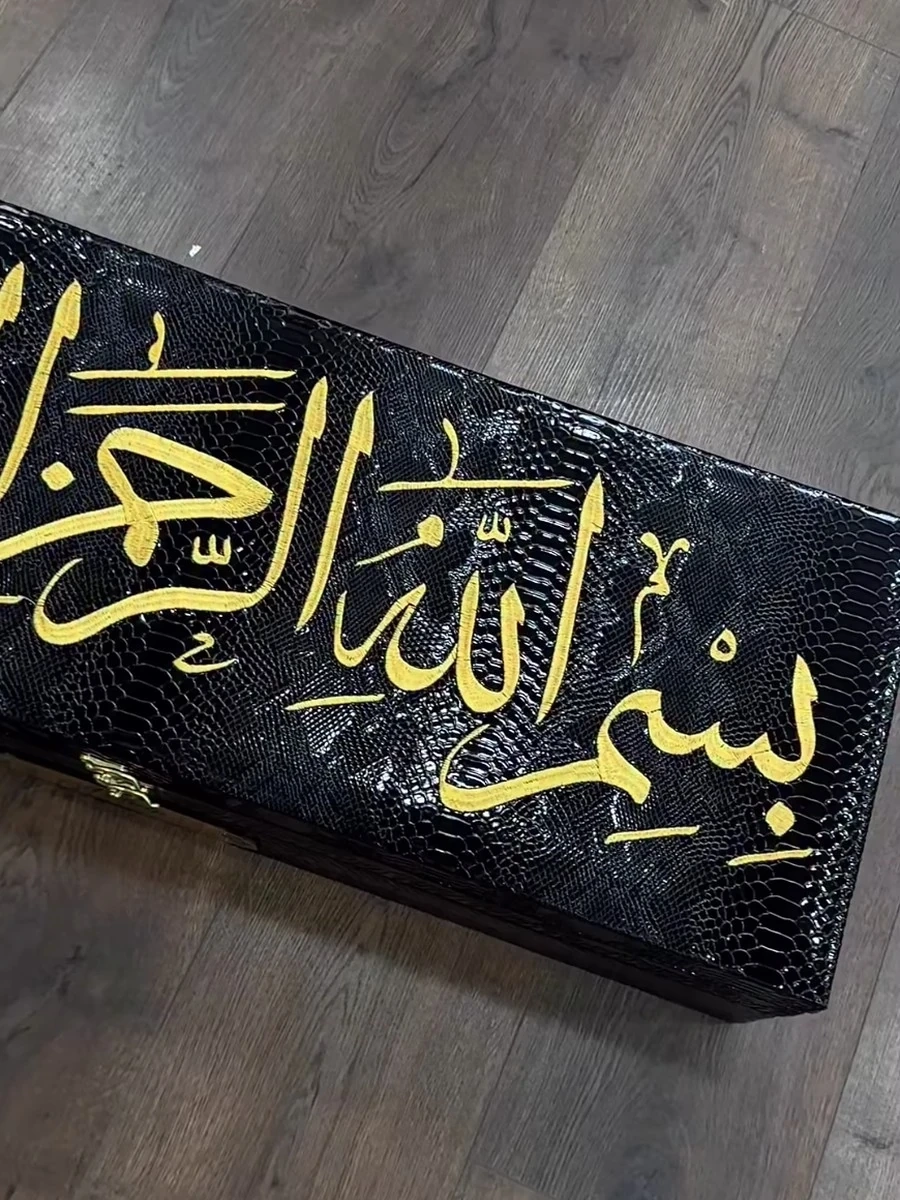 بِسْمِ اللَّهِ الرَّحْمَنِ